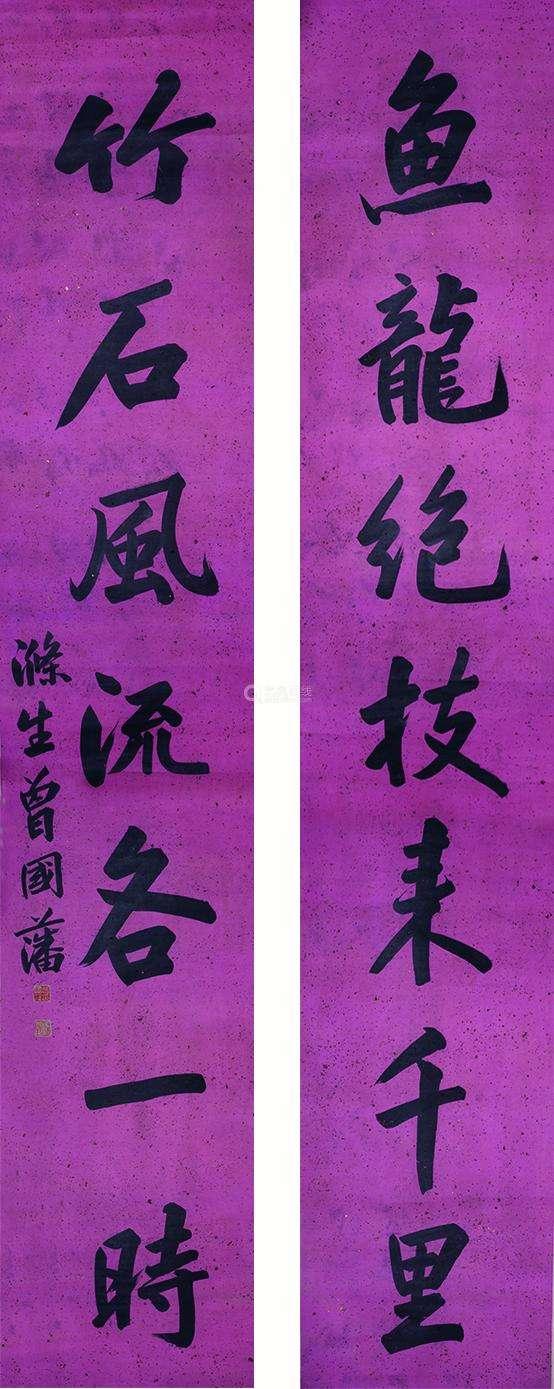 鱼龍绝技来千里
竹石風流各一時
滌生曾國藩